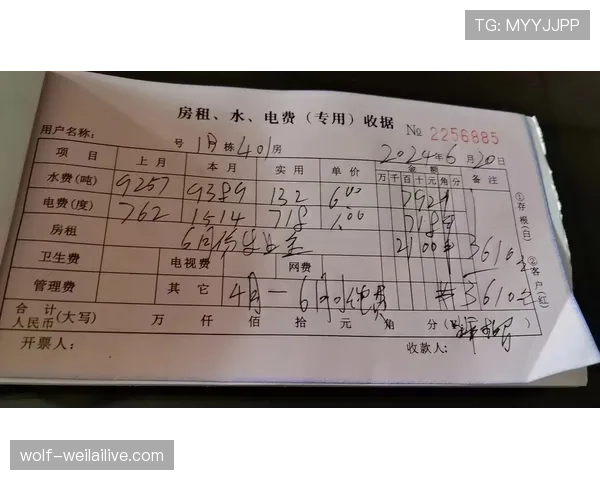 TG: MYYJJPP
房租、水、电费（专用）收据 № 2256885
用户名称： 号 1 栋 401 房 2024 年 6 月 20 日
项 目 上 月 本 月 实 用 单 价 金 额 备 注
万 千 百 十 元 角 分
水费(吨) 9257 9389 132 6.00 792
电费(度) 762 1514 718 1.00 718
房租 6月份 2100 3610
卫生费 电视费 网费
管理费 其 它 4月—6月水电费 3610
合 计
人民币(大写) 万 仟 佰 拾 元 角 分
开票人： 收款人：
①存根(白) ②客户(红)
wolf-weilailive.com